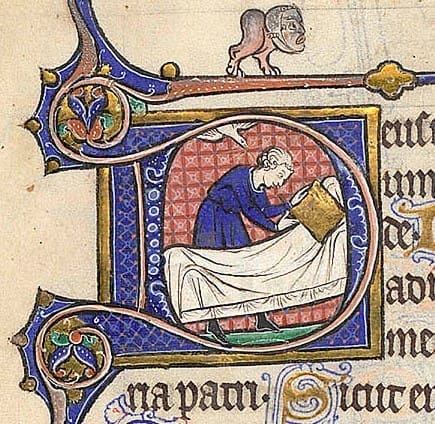 eus i
um
de
adi
me
ria patri. Sicut er